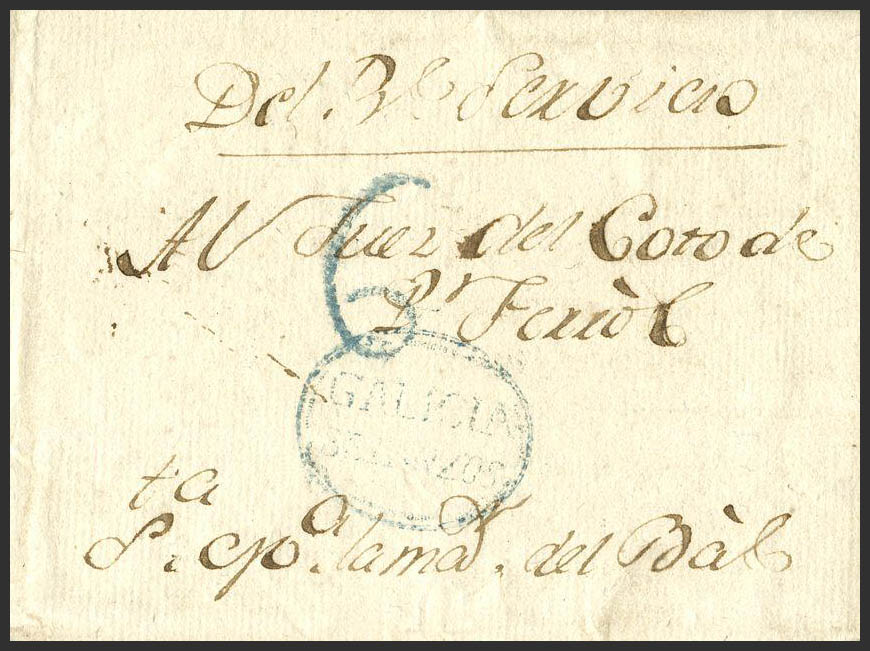 Del Rl Servicio
Al Juez del Coto de
Pr Ferròl
6
GALICIA
BETANZOS
ta
S. Cpa. la mar. del Bàl